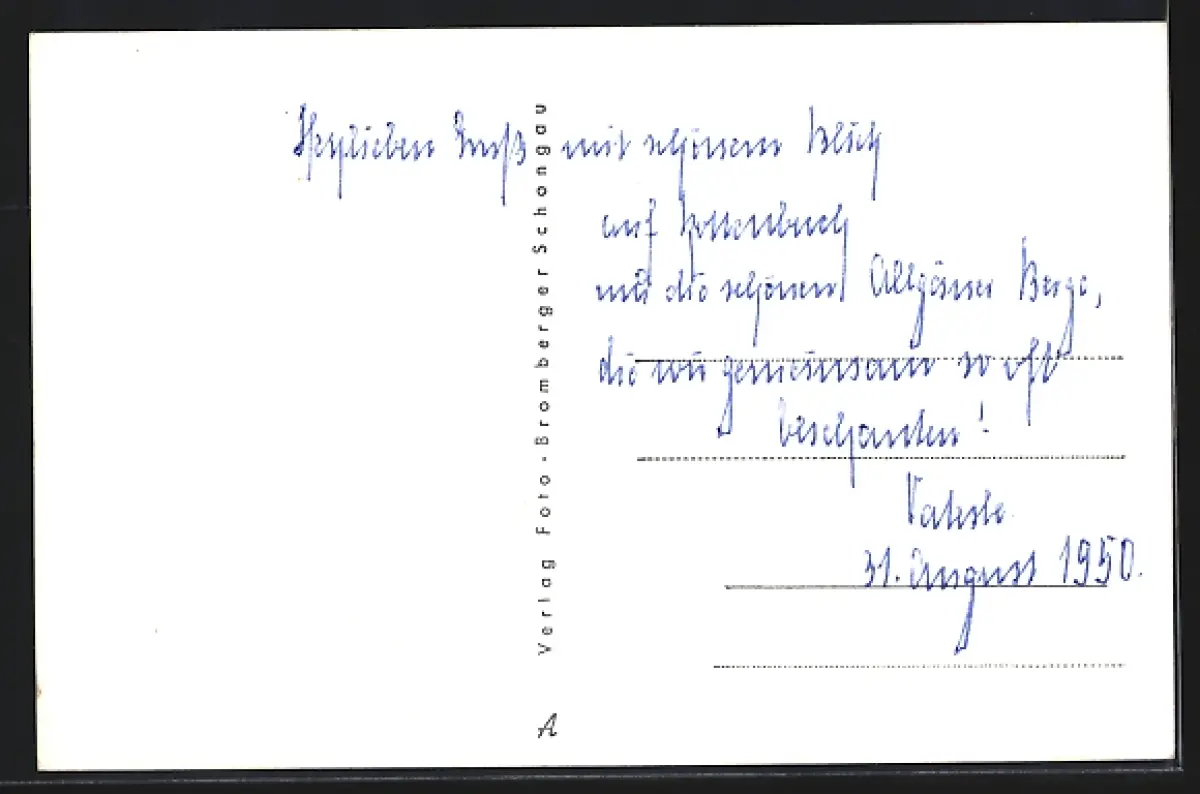 Herzlichen Gruß mit schönem Blick
auf Rottenbuch
und die schönen Allgäuer Berge,
die wir gemeinsam so oft
beschauten!
31. August 1950.
Verlag Foto-Bromberger Schongau
A